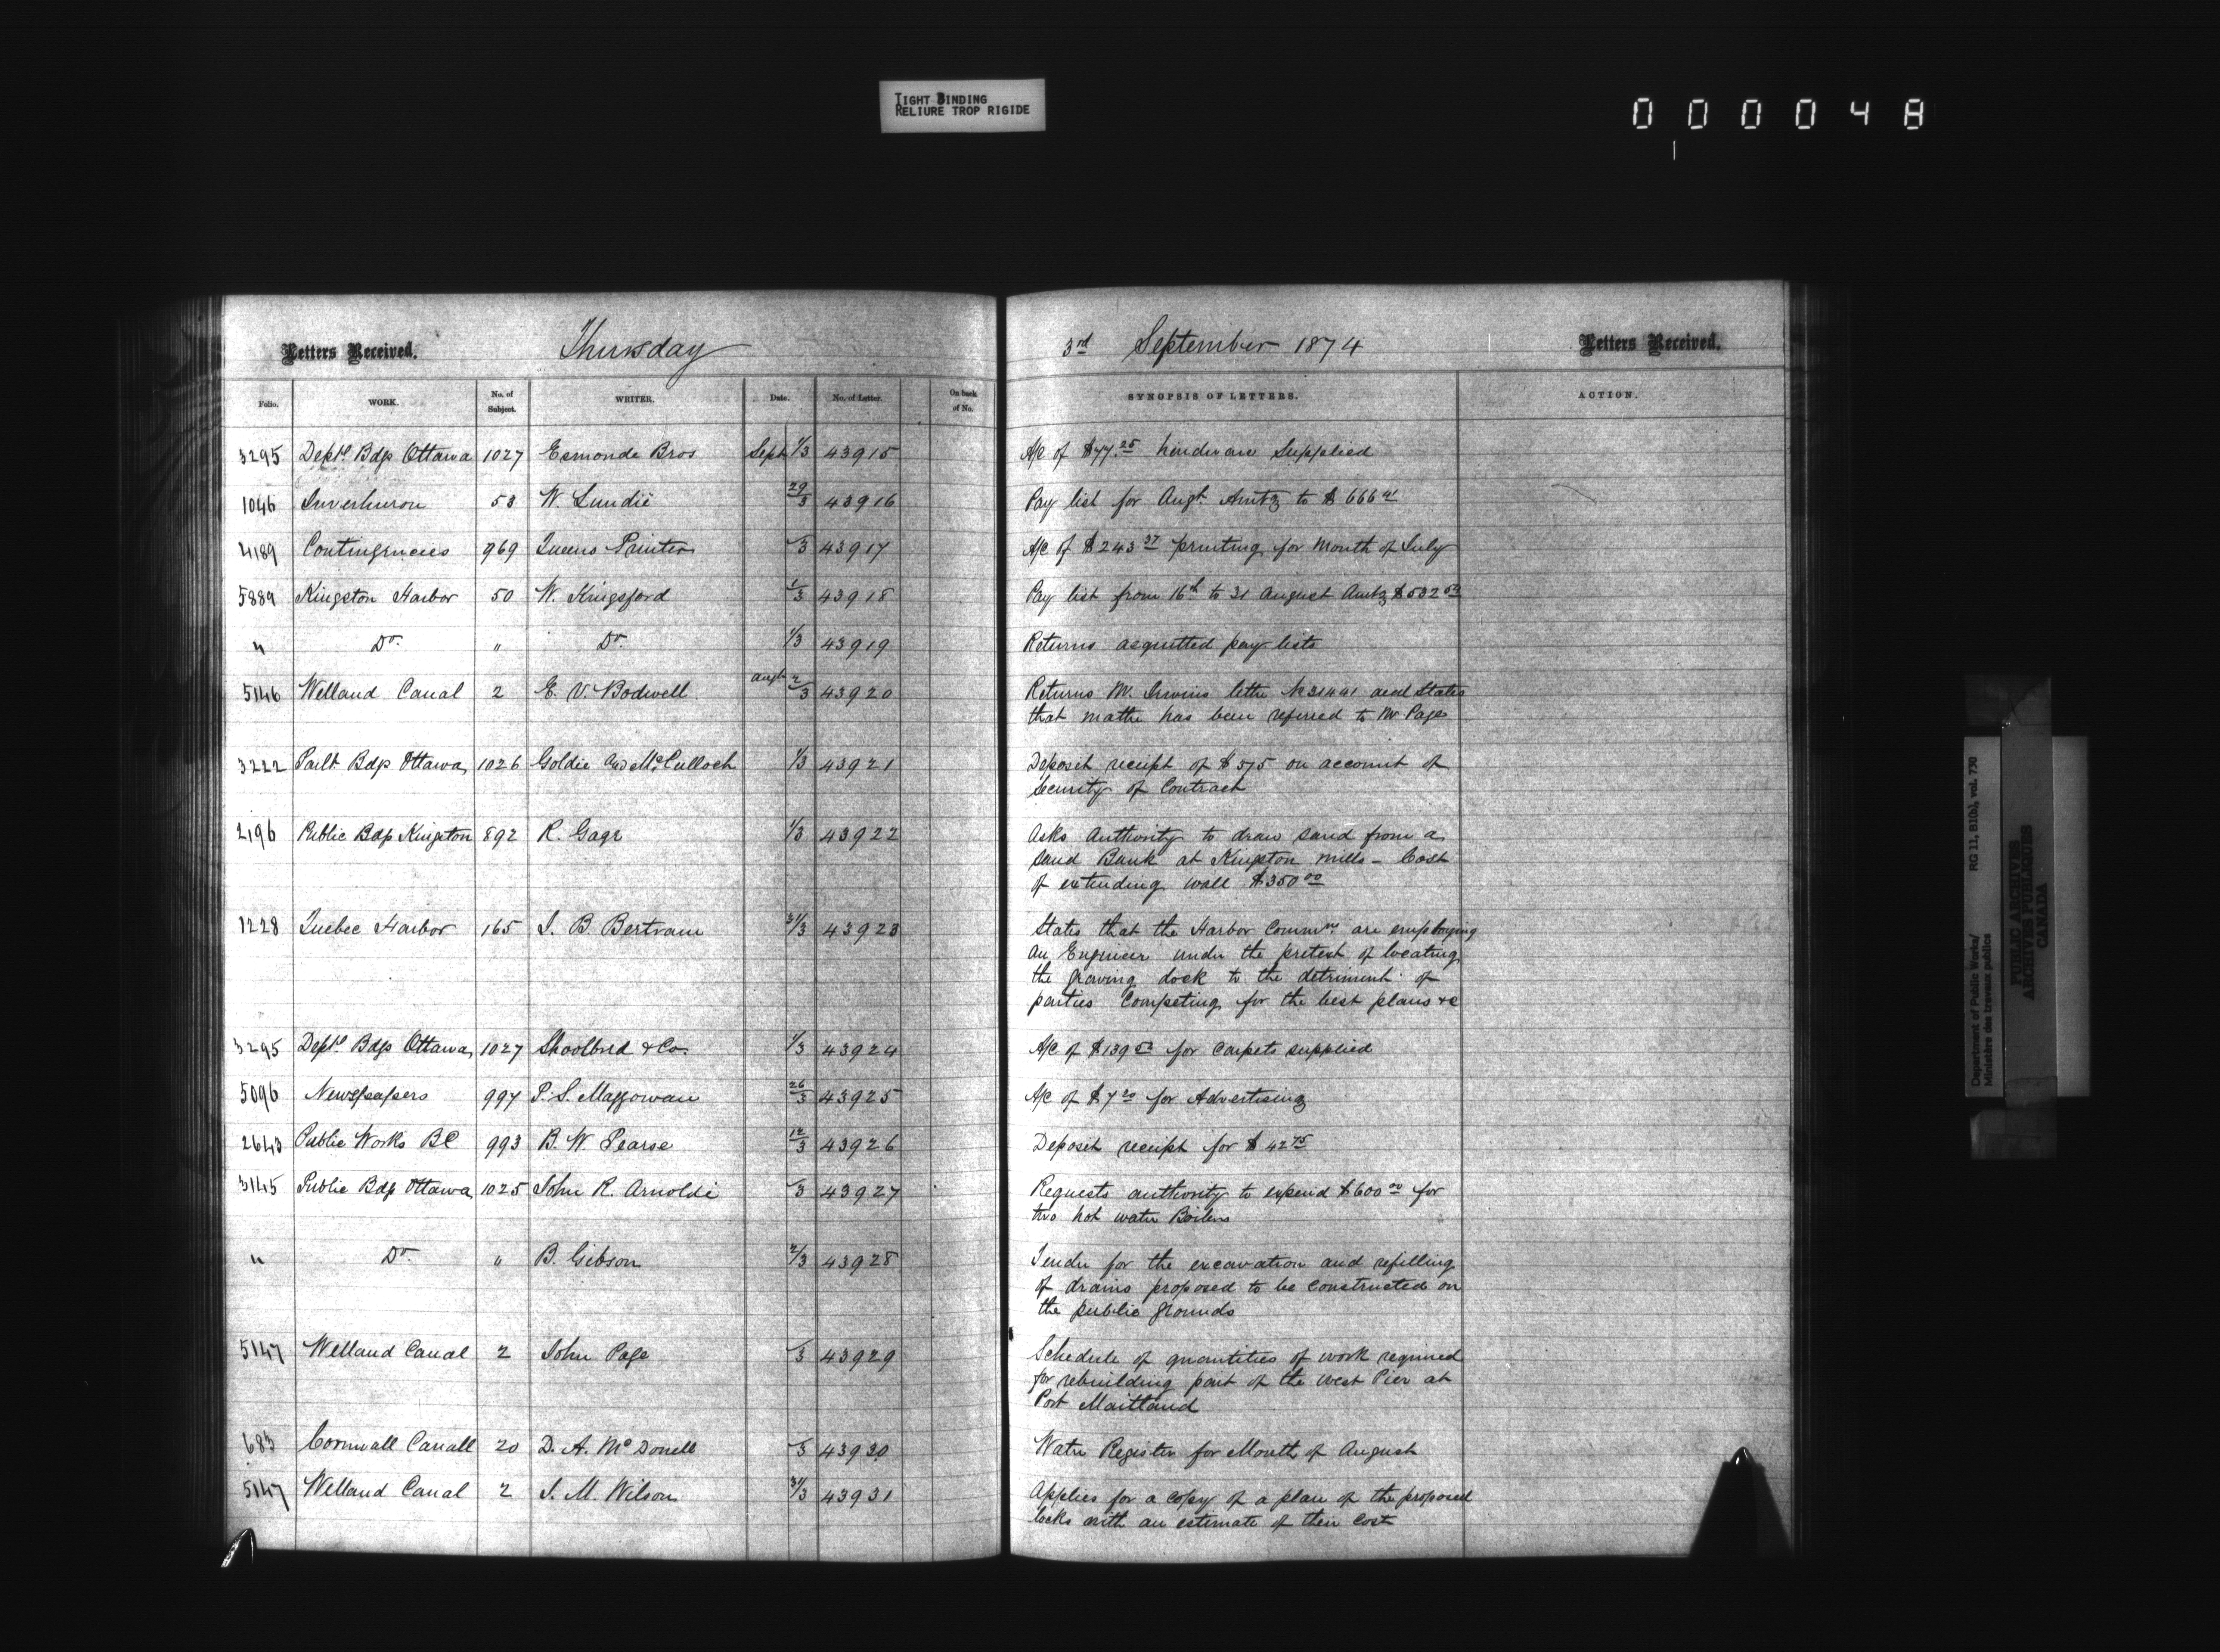 TIGHT BINDING
RELIURE TROP RIGIDE
000048
Letters Received.
Thursday
3rd September 1874
Letters Received.
Folio. WORK. No. of Subject. WRITER. Date. No. of Letter. On back of No. SYNOPSIS OF LETTERS. ACTION.
3295 Deptl Bdgs Ottawa 1027 Esmonde Bros Sept 1/3 43915 A/c of $77.25 hardware Supplied
1046 Inverhuron 53 W. Lundie 29/3 43916 Pay list for Augt. Amtg to $666
4189 Contingencies 969 Queens Printer /3 43917 A/c of $243 37 printing for Month of July
5889 Kingston Harbor 50 W. Kingsford 1/3 43918 Pay list from 16th to 31 August Amtg $532 50
" Do. " Do. 1/3 43919 Returns acquitted pay lists
5146 Welland Canal 2 E. V. Bodwell augt 2/3 43920 Returns Mr. Irwins letter No 31441 and States
that matter has been referred to Mr Page
3222 Parlt. Bdgs Ottawa 1026 Goldie and McCulloch 1/3 43921 Deposit receipt of $575 on account of
Security of Contract
2196 Public Bdgs Kingston 892 R. Gage 1/3 43922 Asks authority to draw sand from a
sand Bank at Kingston mills - Cost
of extending wall $350 00
1228 Quebec Harbor 165 J. B. Bertram 31/3 43923 States that the Harbor Commrs. are employing
an Engineer under the pretext of locating
the graving dock to the detriment of
parties Competing for the best plans &c
3295 Deptl. Bdgs Ottawa 1027 Shoolbred & Co. 1/3 43924 A/c of $139 50 for Carpets supplied
5096 Newspapers 997 P. S. Macgowan 26/3 43925 A/c of $7 20 for Advertising
2643 Public Works BC 993 B. W. Pearse 12/3 43926 Deposit receipt for $42 75
3145 Public Bdgs Ottawa 1025 John R. Arnoldi /3 43927 Requests authority to expend $600 00 for
two hot water Boilers
" Do. " B. Gibson 2/3 43928 Tender for the excavation and refilling
of drains proposed to be constructed on
the public grounds
5147 Welland Canal 2 John Page /3 43929 Schedule of quantities of work required
for rebuilding part of the west Pier at
Port Maitland
683 Cornwall Canall 20 D. A. McDonell /3 43930 Water Register for Month of August
5147 Welland Canal 2 J. M. Wilson 31/3 43931 Applies for a copy of a plan of the proposed
locks with an estimate of their Cost
Department of Public Works/
Ministère des travaux publics
RG 11, B1(b), vol. 730
PUBLIC ARCHIVES
ARCHIVES PUBLIQUES
CANADA